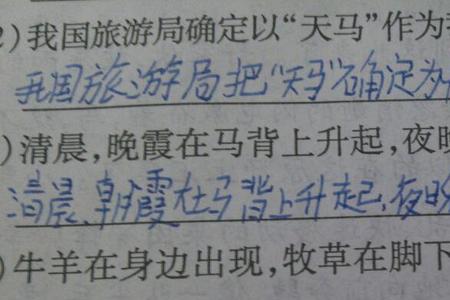 2)我国旅游局确定以“天马”作为
我国旅游局把“天马”确定为
)清晨,晚霞在马背上升起,夜
清晨,朝霞在马背上升起,夜
)牛羊在身边出现,牧草在脚下